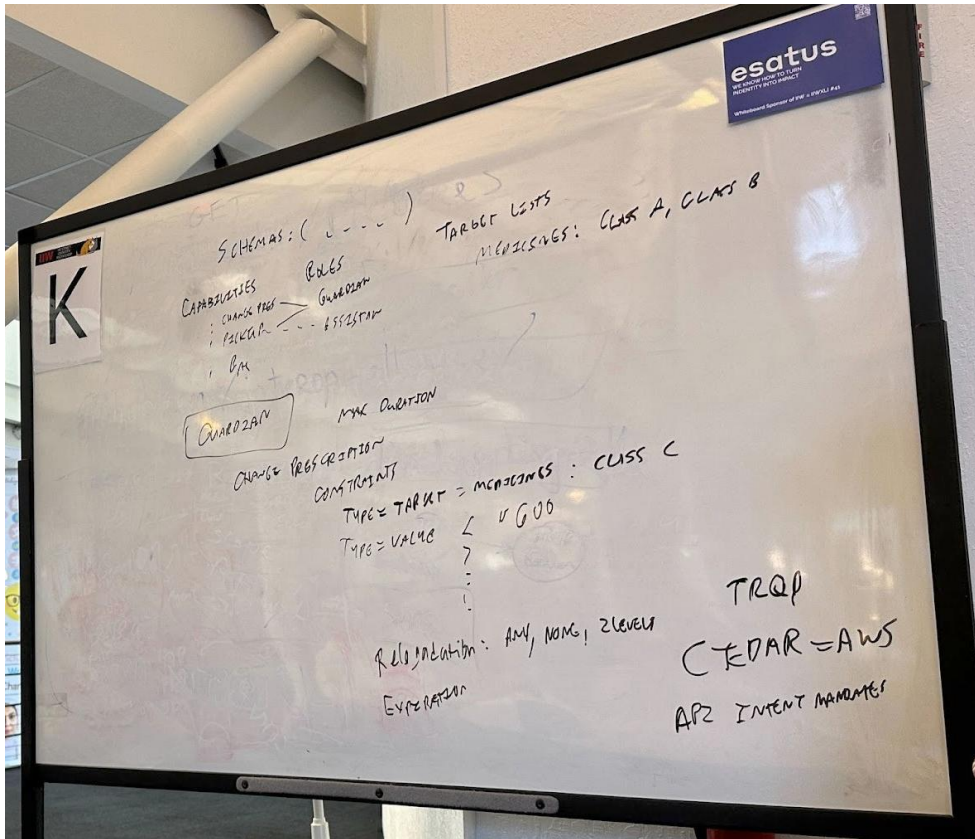 esatus
WE KNOW HOW TO TURN
INDENTITY INTO IMPACT
Whiteboard Sponsor of IIW = IIWXLI #41
FIRE
IIW
K
SCHEMAS: ( , - - - )
TARGET LISTS
MEDICINES: CLASS A, CLASS B
CAPABILITIES
ROLES
CHANGE PRES
GUARDIAN
PICKUP - - - ASSISTAN
GUARDIAN
MAX DURATION
CHANGE PRESCRIPTION
CONSTRAINTS
TYPE = TARGET = MEDICINES : CLASS C
TYPE = VALUE < "600
>
=
:
Relegdation: ANY, NONE, 2 LEVELS
EXPIRATION
TRQP
CEDAR = AWS
AP2 INTENT MANDATES